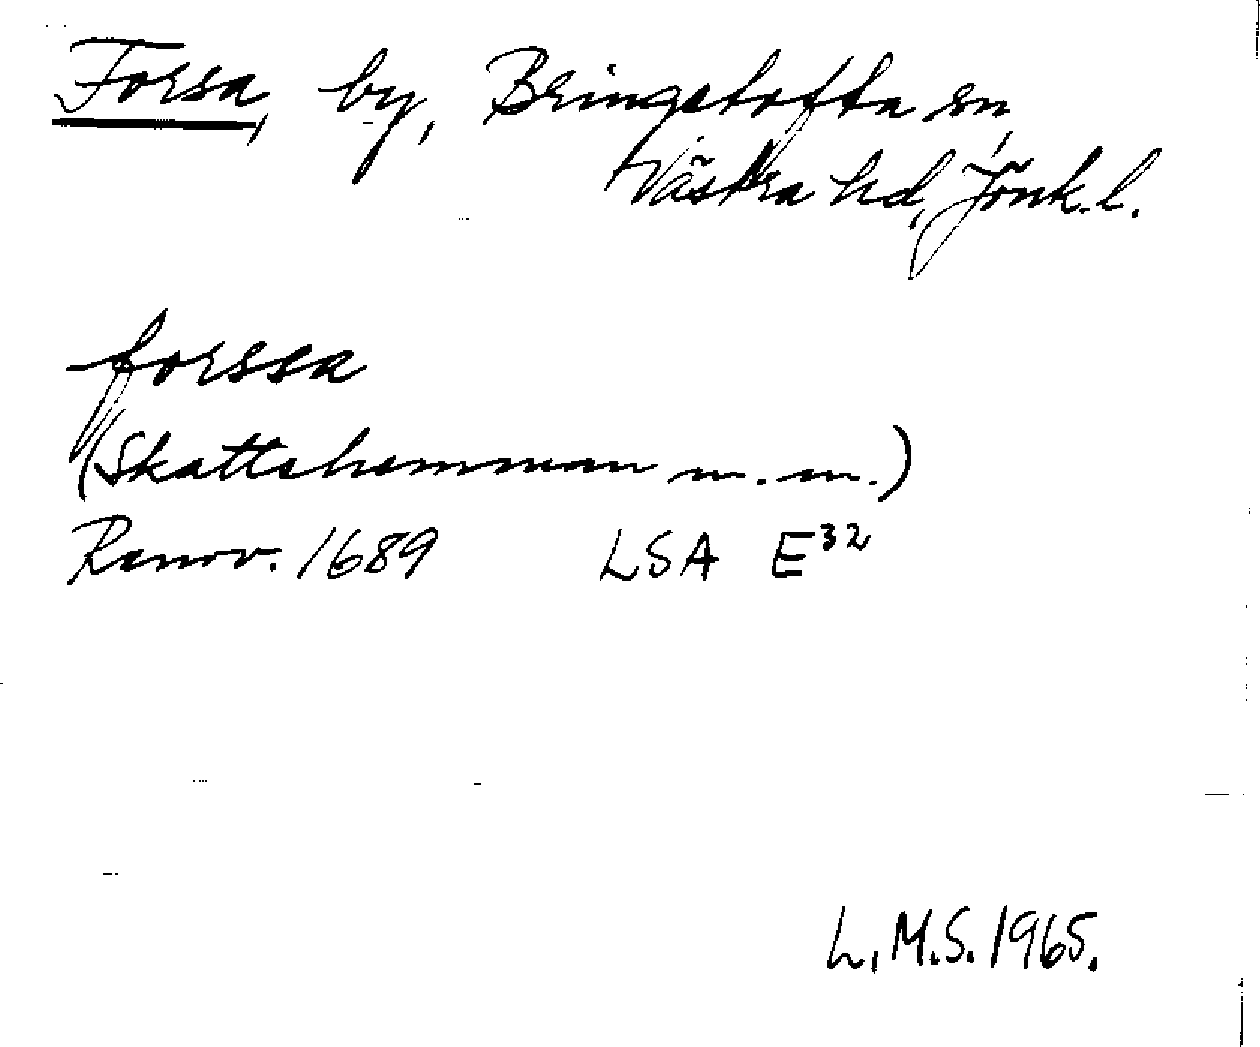 Forsa, by, Bringetofta sn,
Västra hd, Jönk. l.
forssa
(Skattehemman m. m.)
Renov. 1689 LSA E³²
L.M.S. 1965.